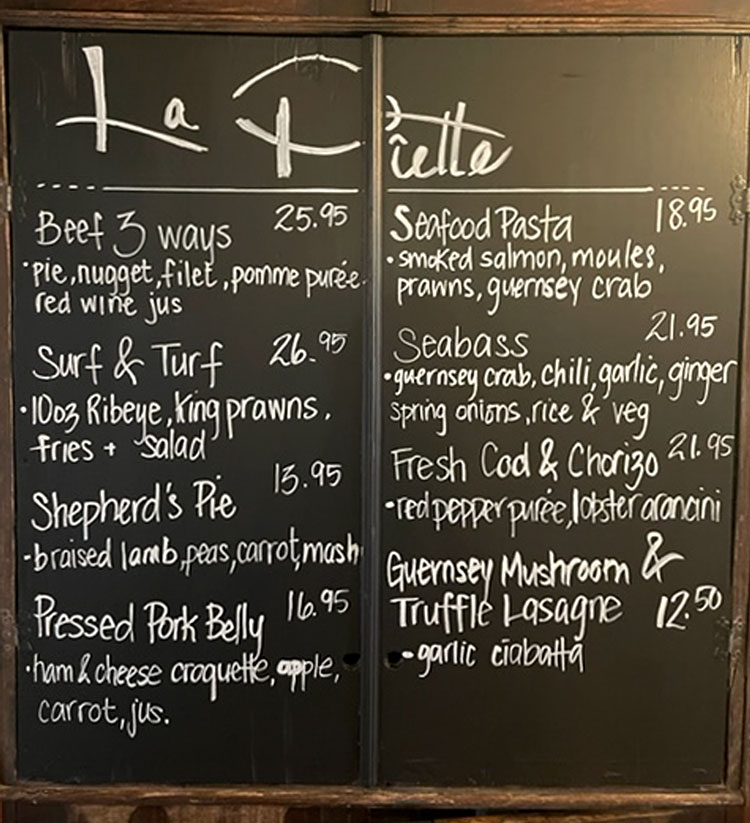 La Piette
Beef 3 ways 25.95
·pie, nugget, filet, pomme purée
red wine jus
Surf & Turf 26.95
·10oz Ribeye, King prawns,
fries + salad
Shepherd's Pie 13.95
-braised lamb, peas, carrot, mash
Pressed Pork Belly 16.95
·ham & cheese croquette, apple,
carrot, jus.
Seafood Pasta 18.95
·smoked salmon, moules,
prawns, guernsey crab
Seabass 21.95
·guernsey crab, chili, garlic, ginger
spring onions, rice & veg
Fresh Cod & Chorizo 21.95
·red pepper purée, lobster arancini
Guernsey Mushroom &
Truffle Lasagne 12.50
-garlic ciabatta